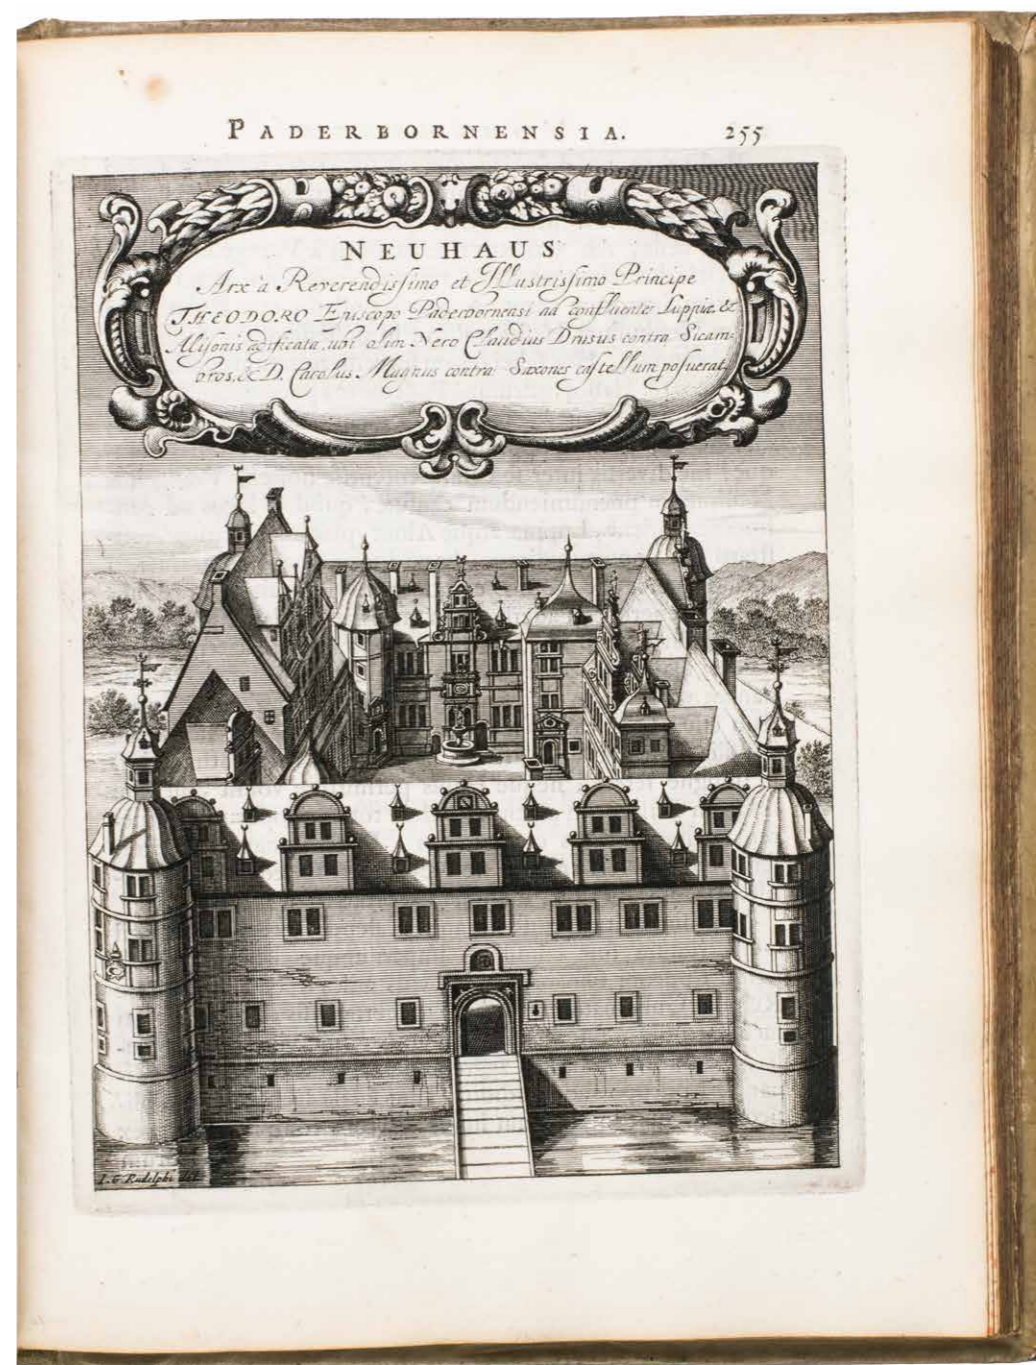 PADERBORNENSIA. 255
NEUHAUS
Arx à Reverendissimo et Illustrissimo Principe
THEODORO Episcopo Paderbornensi ad confluentes Luppiæ &
Alisonis ædificata, ubi olim Nero Claudius Drusus contra Sicam-
bros, & D. Carolus Magnus contra Saxones castellum posuerat.
I. G. Rudolphi del.